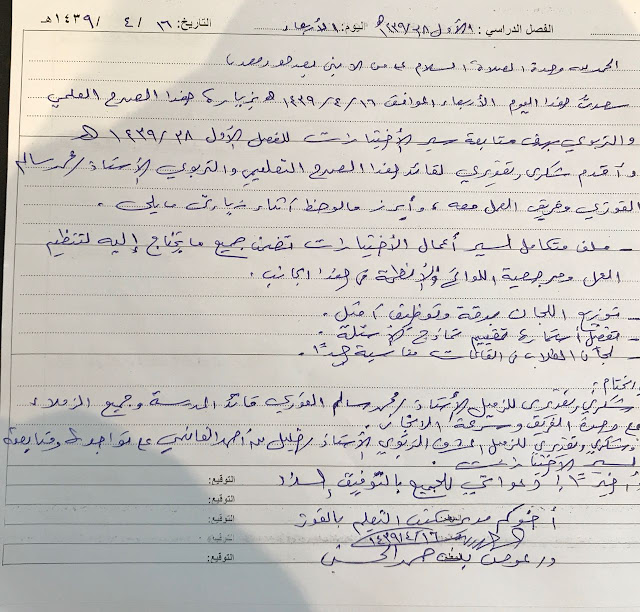 الفصل الدراسي : الأول ٣٨/١٤٣٩هـ اليوم: الأربعاء التاريخ: ١٦ / ٤ / ١٤٣٩هـ
الحمد لله وحده والصلاة والسلام على من لا نبي بعده وبعد
سعدت هذا اليوم الأربعاء الموافق ١٤٣٩/٤/١٦ هـ بزيارة هذا الصرح العلمي
والتربوي بهدف متابعة سير الاختبارات للفصل الأول ٣٨/١٤٣٩ هـ
وأقدم شكري وتقديري لقائد هذا الصرح التعليمي والتربوي الأستاذ/محمد سالم
القوزي وفريق العمل معه، وأبرز مالوحظ أثناء زيارتي مايلي.
- ملف متكامل لسير أعمال الاختبارات تضمن جميع مايحتاج إليه لتنظيم
العمل ومرجعية اللوائح والأنظمة في هذا الجانب.
- توزيع اللجان بدقة وتوظيف أمثل.
- تفعيل استمارة تقييم نماذج الأسئلة.
- لجان الطلاب في القاعات مناسبة جداً.
وشكري وتقديري للزميل الأستاذ/محمد سالم القوزي قائد المدرسة وجميع الزملاء
على وسرعة الإنجاز.
وشكري وتقديري للزميل المشرف التربوي الأستاذ/خليل بن أحمد على تواجده ومتابعة
لسير الاختبارات.
أخيراً دعواتي للجميع بالتوفيق والسداد
التوقيع:
التوقيع:
أخوكم مدير مكتب التعليم بالقوز
التوقيع:
١٤٣٩/٤/١٦
التوقيع: